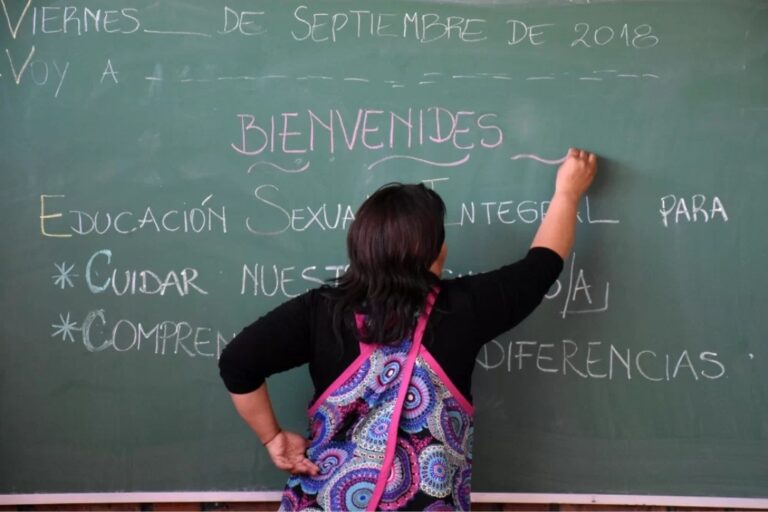 VIERNES___ DE SEPTIEMBRE DE 2018
VOY A _ _ _ _ _ _ _ _ _ _ _ _ _
BIENVENIDES
EDUCACIÓN SEXUAL INTEGRAL PARA
* CUIDAR
* DIFERENCIAS.